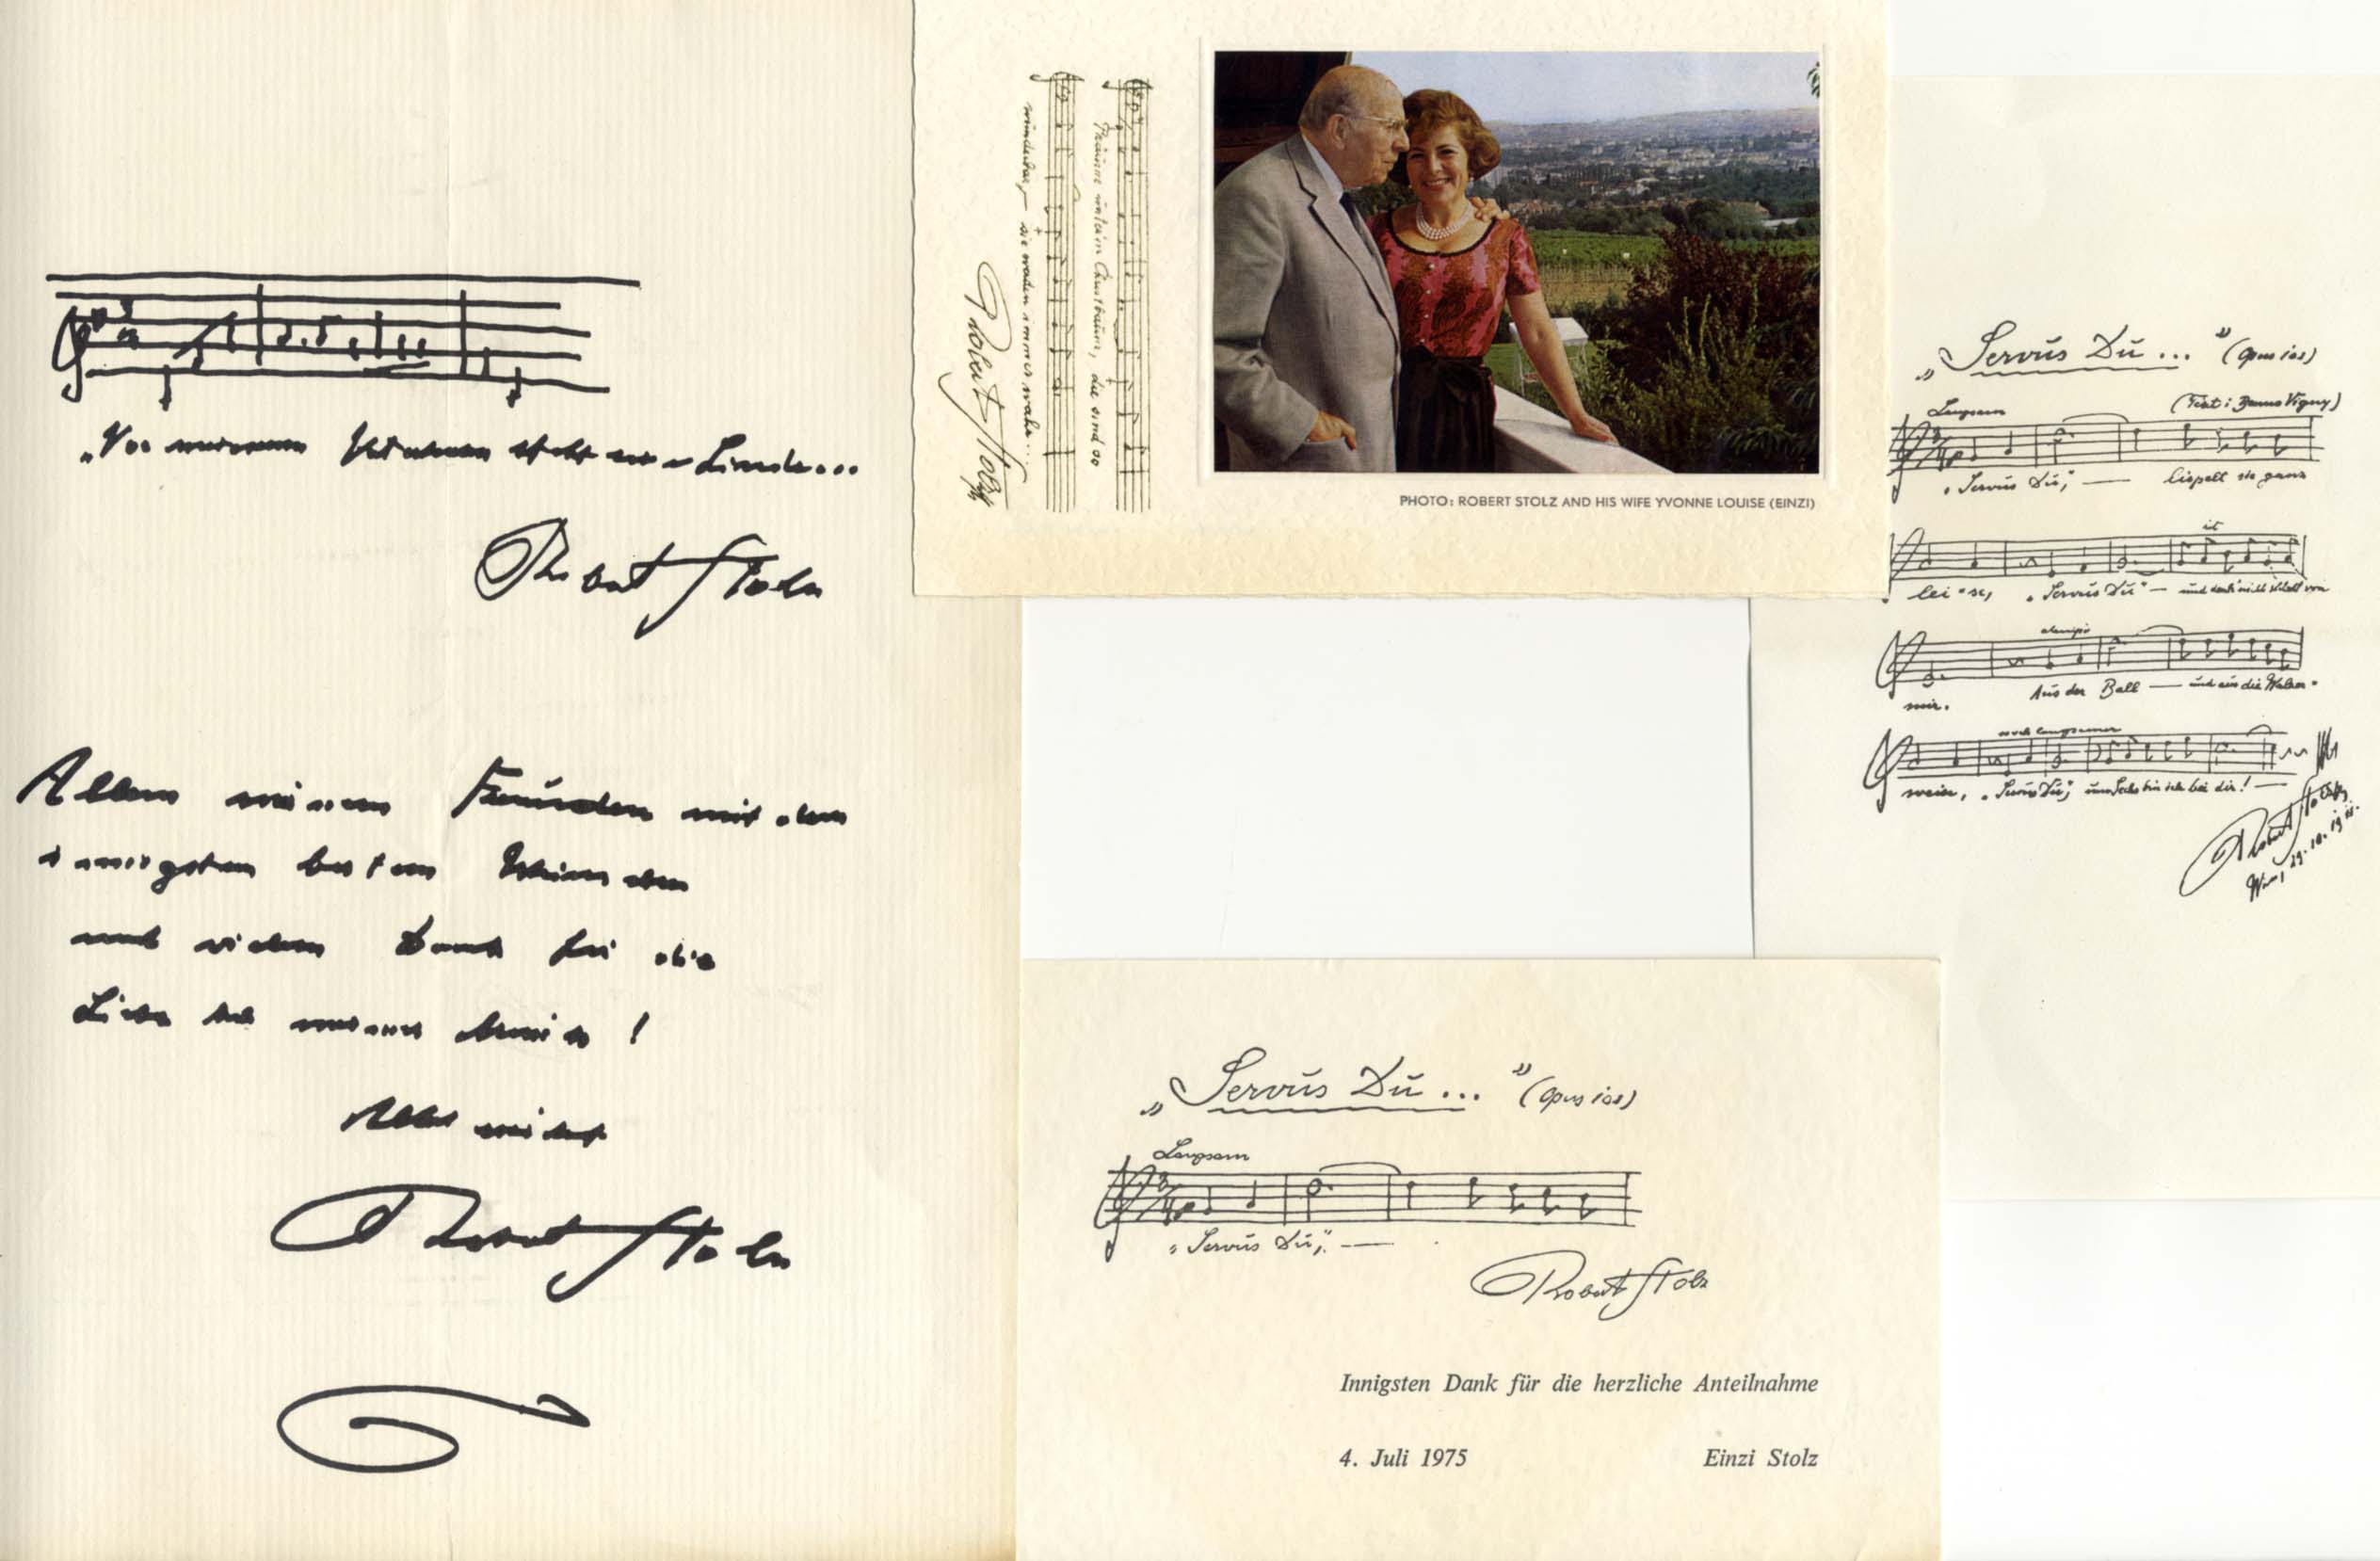 „Vor meinem steht eine Linde...
Robert Stolz
Allen meinen Freunden mit den
innigsten besten Wünschen
und vielen Dank für die
Liebe zu meiner Musik!
Robert Stolz
Träume unter'm Christbaum, die sind so
wunderbar, – sie werden immer wahr...
Robert Stolz
PHOTO: ROBERT STOLZ AND HIS WIFE YVONNE LOUISE (EINZI)
„Servus Du..."
(Opus 102)
Langsam
(Text: Benno Vigny)
„Servus Du," — lispelt sie ganz
lei-se, „Servus Du" — und denk' nicht schlecht von
mir. Aus der Ball — und aus die Walzer-
noch langsamer
weise, „Servus Du," um Sechs bin ich bei dir! —
Robert Stolz
Wien,
„Servus Du..."
(Opus 102)
Langsam
„Servus Du," —
Robert Stolz
Innigsten Dank für die herzliche Anteilnahme
4. Juli 1975 Einzi Stolz